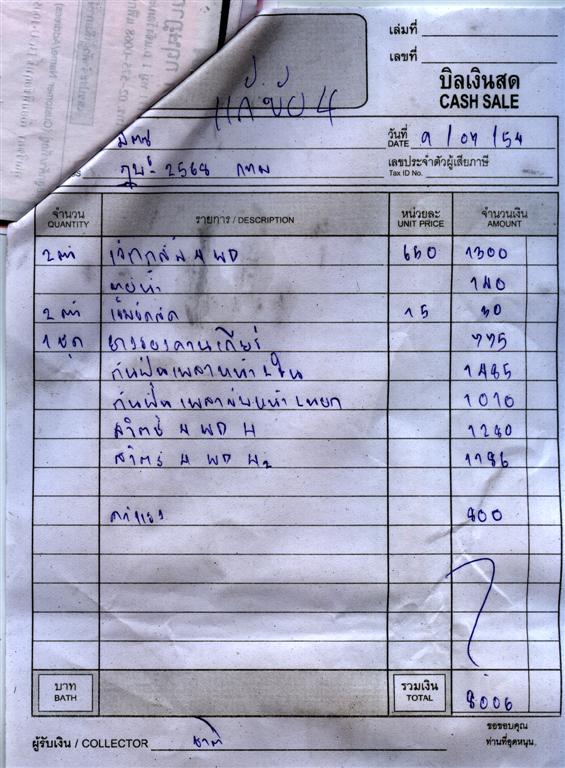 เล่มที่
เลขที่
บิลเงินสด
CASH SALE
แก้ ขับ 4
วันที่ DATE 9 / 07 / 54
2568 กทม
เลขประจำตัวผู้เสียภาษี
Tax ID No.
จำนวน รายการ / DESCRIPTION หน่วยละ จำนวนเงิน
QUANTITY UNIT PRICE AMOUNT
2 ตัว 4 WD 650 1300
ท่อน้ำ 140
2 ตัว เข็มขัดรัด 15 30
1 ชุด ยางรองคานเกียร์ 775
กันฝุ่นเพลาหน้า L ใน 1485
กันฝุ่นเพลาขับหน้า L นอก 1010
สวิตซ์ 4 WD 4 1280
สวิตซ์ 4 WD 42 1186
ค่าแรง 800
บาท รวมเงิน 8006
BATH TOTAL
ขอขอบคุณ
ผู้รับเงิน / COLLECTOR ชาติ ท่านที่อุดหนุน